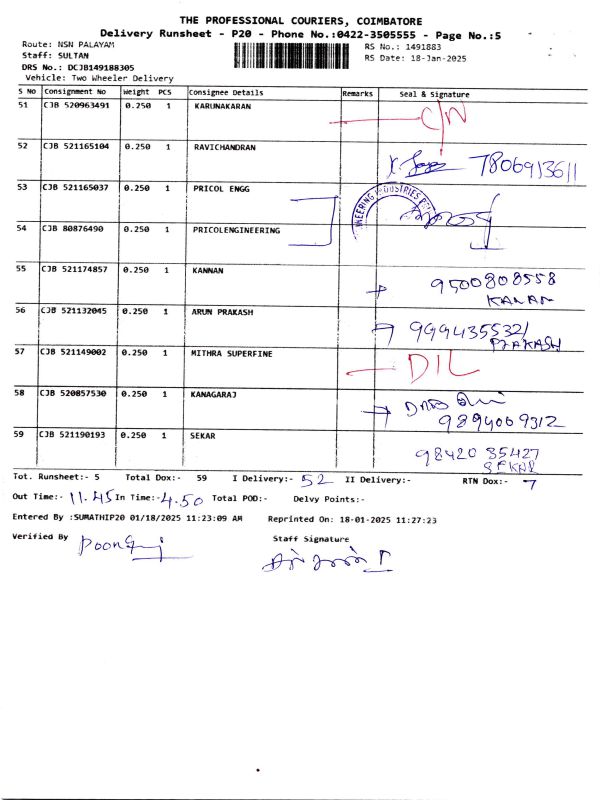 THE PROFESSIONAL COURIERS, COIMBATORE
Delivery Runsheet - P20 - Phone No.:0422-3505555 - Page No.:5
Route: NSN PALAYAM RS No.: 1491883
Staff: SULTAN RS Date: 18-Jan-2025
DRS No.: DCJB149188305
Vehicle: Two Wheeler Delivery
S No Consignment No Weight PCS Consignee Details Remarks Seal & Signature
51 CJB 520963491 0.250 1 KARUNAKARAN C/N
52 CJB 521165104 0.250 1 RAVICHANDRAN 7806913611
53 CJB 521165037 0.250 1 PRICOL ENGG
54 CJB 80876490 0.250 1 PRICOLENGINEERING
55 CJB 521174857 0.250 1 KANNAN 9500808558
KANAN
56 CJB 521132045 0.250 1 ARUN PRAKASH 9994355321
PRAKASH
57 CJB 521149002 0.250 1 MITHRA SUPERFINE D/L
58 CJB 520857530 0.250 1 KANAGARAJ
9894009312
59 CJB 521190193 0.250 1 SEKAR 98420 35427
SEKAR
Tot. Runsheet:- 5 Total Dox:- 59 I Delivery:- 52 II Delivery:- RTN Dox:- 7
Out Time:- 11.45 In Time:- 4.50 Total POD:- Delvy Points:-
Entered By :SUMATHIP20 01/18/2025 11:23:09 AM Reprinted On: 18-01-2025 11:27:23
Verified By Staff Signature